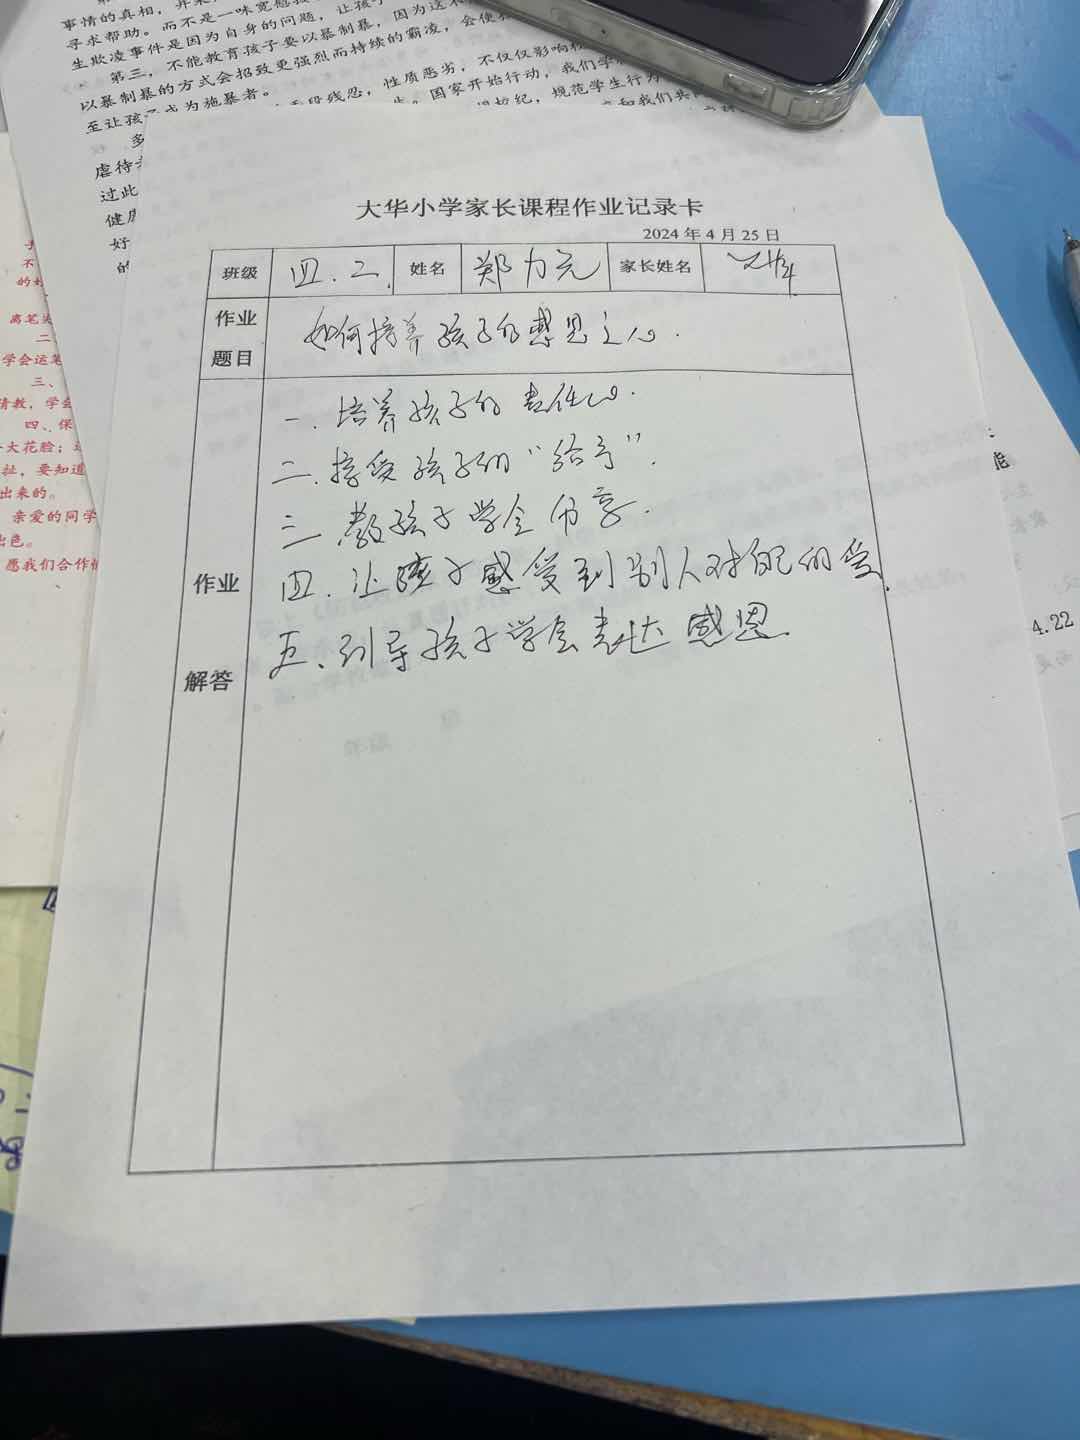 事情的真相，并
寻求帮助。而不是一味宽慰
生欺凌事件是因为自身的问题，让孩子
第三，不能教育孩子要以暴制暴，因为这
以暴制暴的方式会招致更强烈而持续的霸凌，会使
至让孩子成为施暴者。
手段残忍，性质恶劣，不仅仅影响
国家开始行动，我们学
规范学生行为
和我们共
虐待
过此
健康
好
的
大华小学家长课程作业记录卡
2024年4月25日
班级 四.二. 姓名 郑力元 家长姓名
作业题目 如何培养孩子的感恩之心.
作业解答
一.培养孩子的责任心.
二.接受孩子的“给予”.
三 教孩子学会分享.
四.让孩子感受到别人对自己的爱.
五.引导孩子学会表达感恩
不
的
离笔尖
二
学会运笔
三、
请教，学会
四、保
大花脸；
扯，要知道
出来的。
亲爱的同学
出色。
愿我们合作
能
4.22